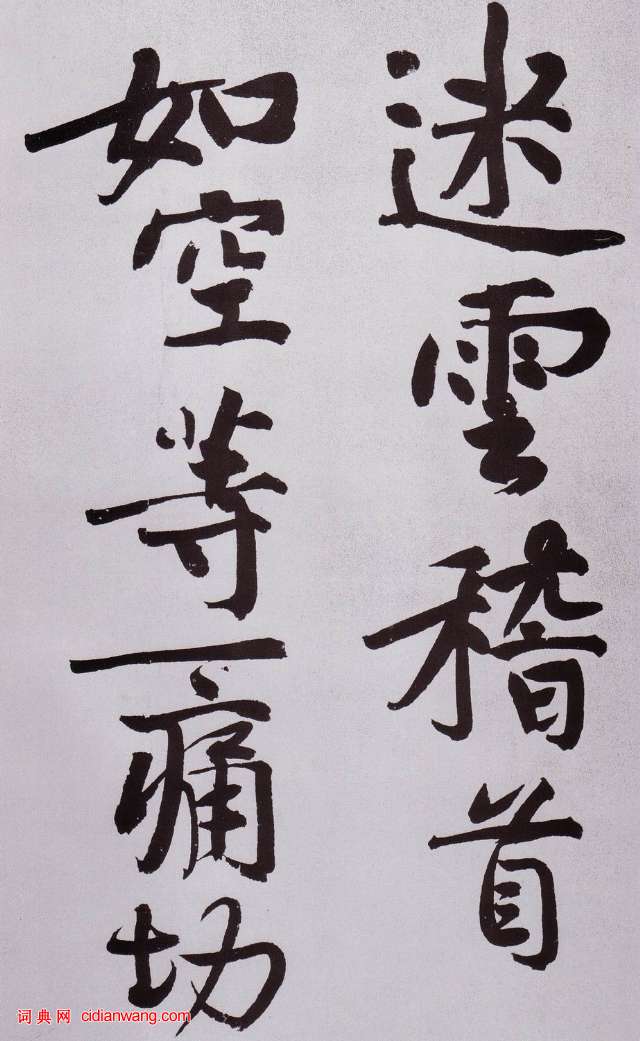 迷雲稽首
如空等一痛切
词典网 cidianwang.com